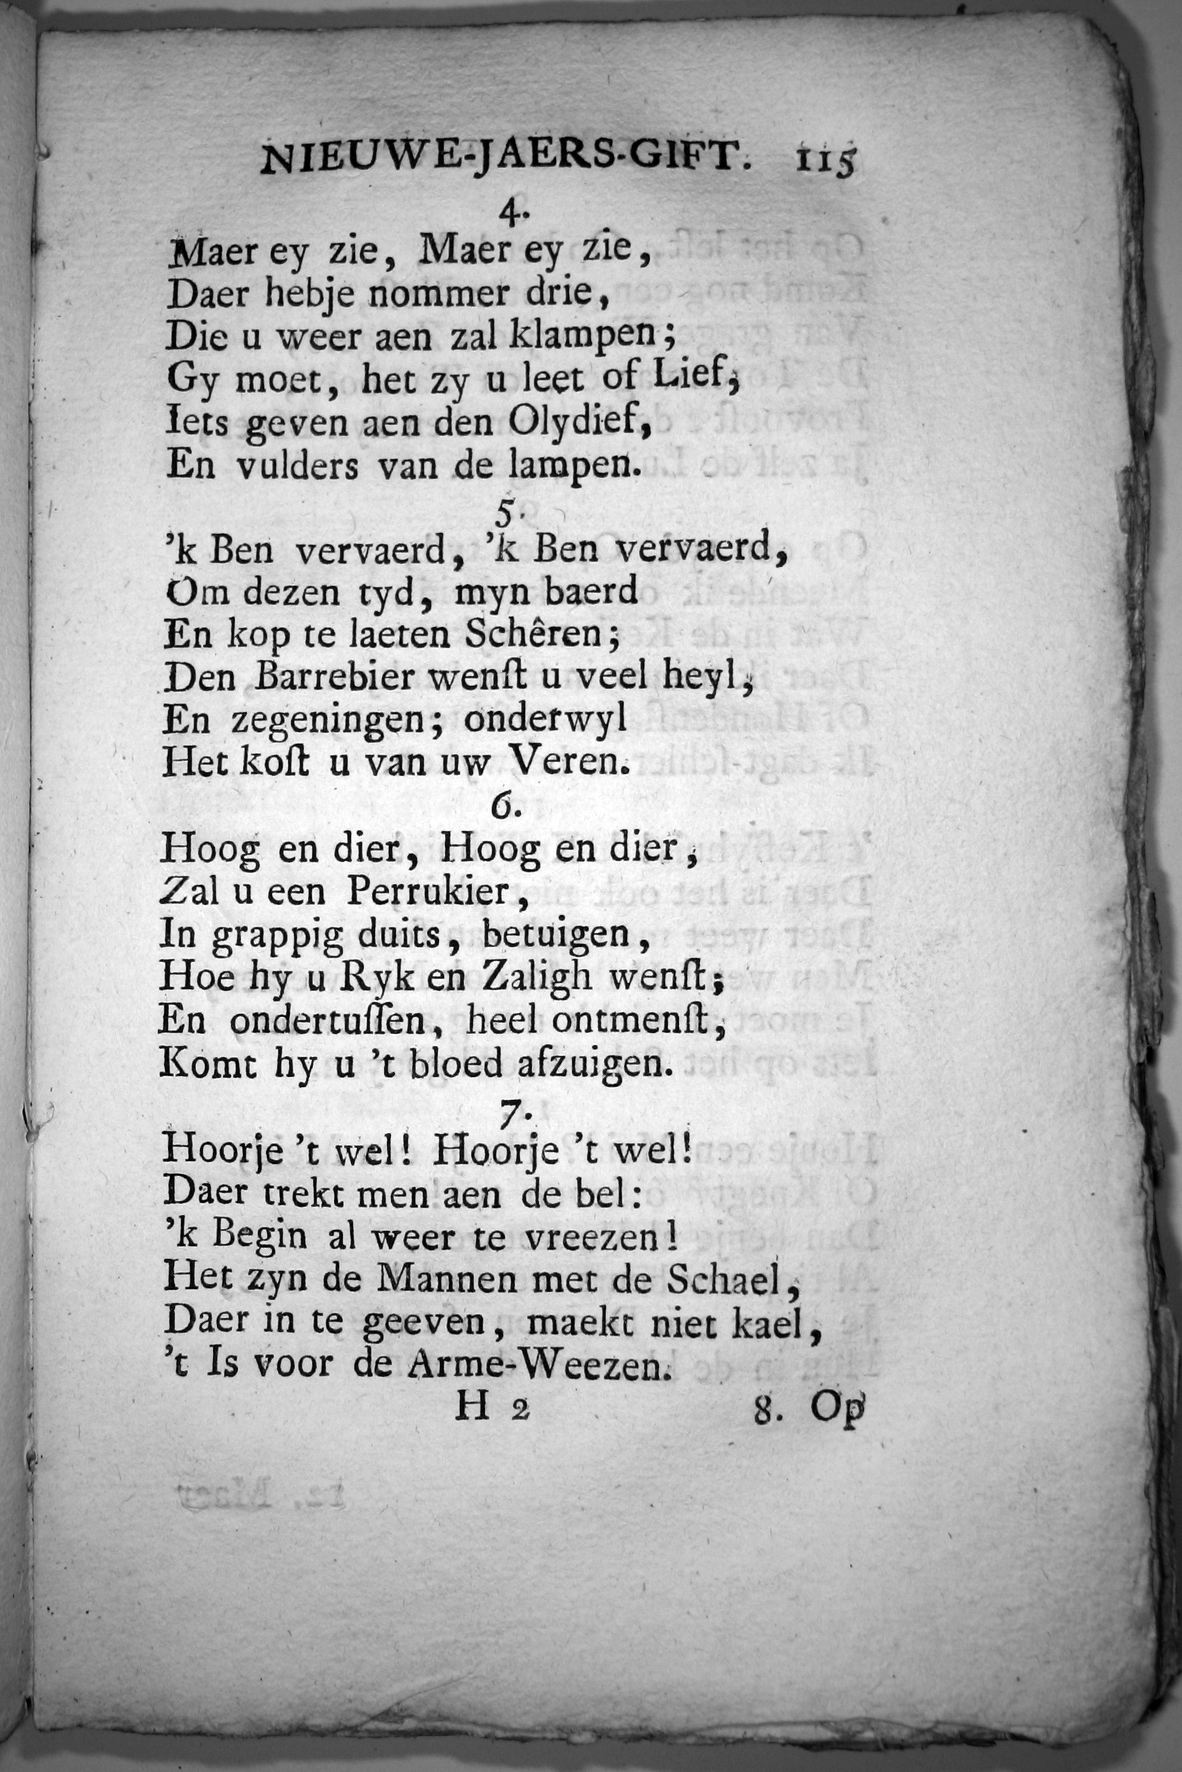 NIEUWE-JAERS-GIFT. 115
4.
Maer ey zie, Maer ey zie,
Daer hebje nommer drie,
Die u weer aen zal klampen;
Gy moet, het zy u leet of Lief;
Iets geven aen den Olydief,
En vulders van de lampen.
5.
’k Ben vervaerd, ’k Ben vervaerd,
Om dezen tyd, myn baerd
En kop te laeten Schêren;
Den Barrebier wenſt u veel heyl;
En zegeningen; onderwyl
Het koſt u van uw Veren.
6.
Hoog en dier, Hoog en dier,
Zal u een Perrukier,
In grappig duits, betuigen,
Hoe hy u Ryk en Zaligh wenſt;
En ondertuſſen, heel ontmenſt,
Komt hy u ’t bloed afzuigen.
7.
Hoorje ’t wel! Hoorje ’t wel!
Daer trekt men aen de bel:
’k Begin al weer te vreezen!
Het zyn de Mannen met de Schael,
Daer in te geeven, maekt niet kael,
’t Is voor de Arme-Weezen.
H 2 8. Op